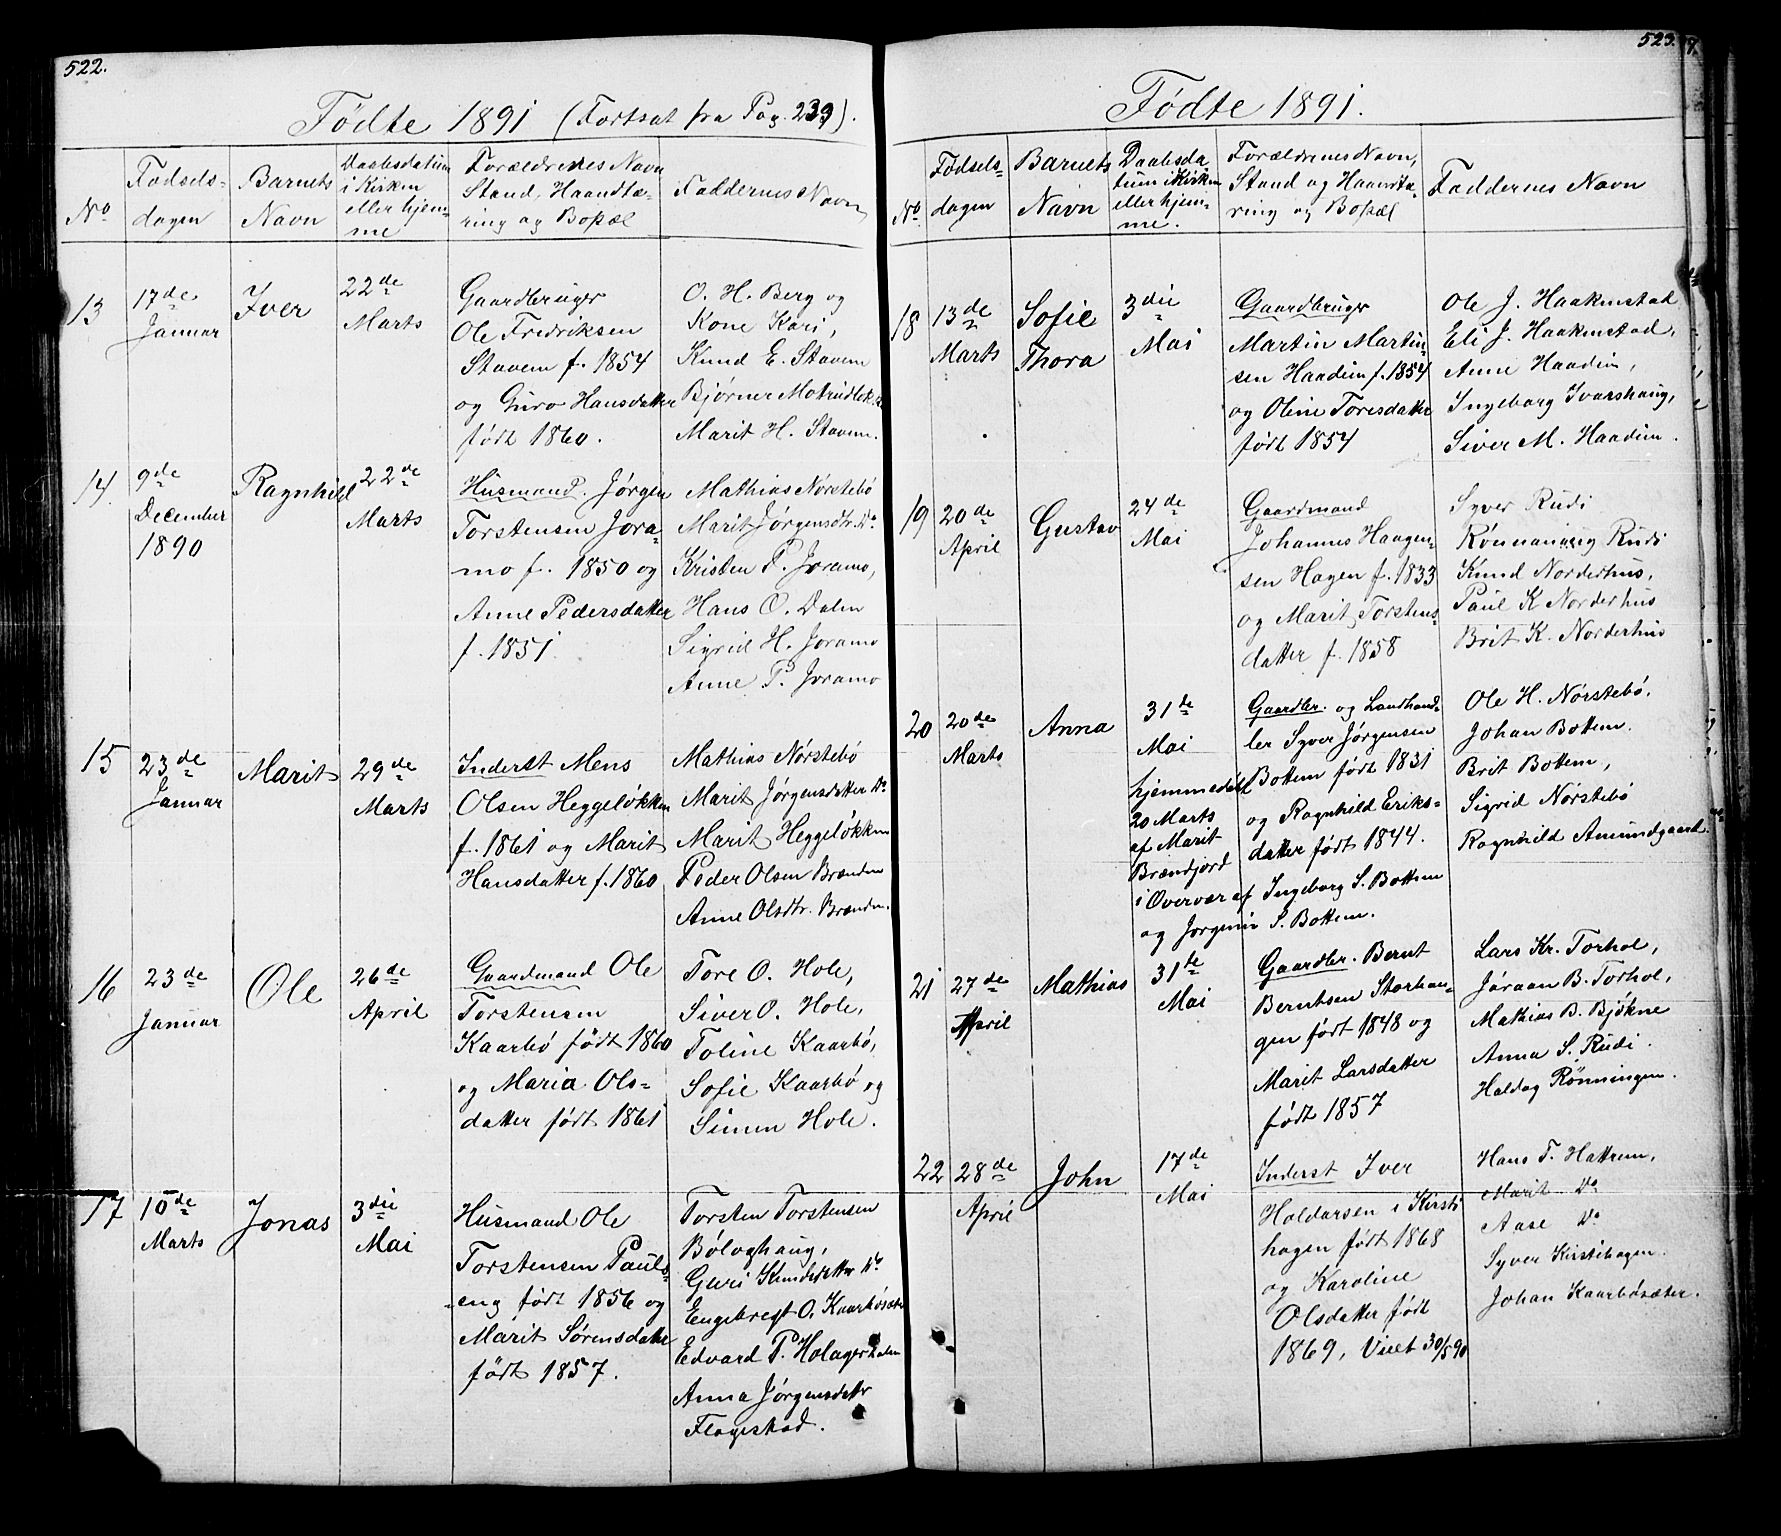 522.
Fødte 1891 (Fortsat fra Pag. 239).
No
Fødsels-
dagen
Barnets
Navn
Daabsdatum
i Kirken
eller hjem-
me
Forældrenes Navn
Stand, Haandtæ-
ring og Bopæl
Faddernes Navn
13
17de
Januar
Iver
22de
Marts
Gaardbruger
Ole Fredriksen
Stavem f. 1854
og Guro Hansdatter
født 1860.
O. H. Berg og
Kone Kari,
Knud E. Stavem
Bjørner
Marit H. Stavem.
14.
9de
December
1890
Ragnhild
22de
Marts
Husmand. Jørgen
Torstensen Jora-
mo f. 1850 og
Anne Pedersdatter
f. 1851.
Mathias Nørstebø
Marit Jørgensdtr. Do
Kristen P. Joramo,
Hans O. Dalm
Sigrid H. Joramo
Anne P. Joramo
15
23de
Januar
Marit
29de
Marts
Inderst Mens
Olsen Heggeløkken
f. 1861 og Marit
Hansdatter f. 1860
Mathias Nørstebø
Marit Jørgensdatter Do
Marit Heggeløkken
Peder Olsen Brænden
Anne Olsdtr. Brænden.
16
23de
Januar
Ole
26de
April
Gaardmand Ole
Torstensen
Kaarbø født 1860
og Maria Ols-
datter født 1861
Tore O. Hole,
Siver O. Hole,
Toline Kaarbø,
Sofie Kaarbø og
Simen Hole.
17
10de
Marts
Jonas
3die
Mai
Husmand Ole
Torstensen Pauls-
eng født 1856 og
Marit Sørensdatter
født 1857.
Torsten Torstensen
Bøloghaug,
Guri Knudsdatter Do
Engebregt O. Kaarbøsæter
Edvard P. Holagerhalen
Anna Jørgensdatter
Flagestad.
523.
Fødte 1891.
No
Fødsels-
dagen
Barnets
Navn
Daabsda
tum i Kirken
eller hjem-
me.
Forældrenes Navn,
Stand og Haandtæ-
ring og Bopæl
Faddernes Navn
18
13de
Marts
Sofie
Thora
3die
Mai
Gaardbruger
Martin Martin-
sen Haadem f. 1854
og Oline Toresdatter
født 1854
Ole J. Haakenstad
Eli J. Haakenstad,
Anne Haadem,
Ingeborg Ivarshaug,
Siver M. Haadem.
19
20de
April
Gustav
24de
Mai
Gaardmand
Johannes Haagen-
sen Hagen f. 1833
og Marit Torstens-
datter f. 1858
Syver Rudi
Rønnaug Rudi
Knud Norderhus,
Paul K Norderhus
Brit K. Norderhus
20
20de
Marts
Anna
31de
Mai
hjemmedøbt
20 Marts
af Marit
Brændjord
i Overvær af Ingeborg S. Bottem
og Jørgine S. Bottem.
Gaardbr. og Landhand-
ler Syver Jørgensen
Bottem født 1831
og Ragnhild Eriks-
datter født 1844.
Ole H. Nørstebø,
Johan Bottem.
Brit Bottem,
Sigrid Nørstebø
Ragnhild Amundgaard.
21
27de
April
Mathias
31te
Mai
Gaardbr. Bernt
Berntsen Storhau-
gen født 1848 og
Marit Larsdatter
født 1857
Lars Kr. Torhol,
Jøraan B. Torhol,
Mathias B. Bjøkne
Anna S. Rudi.
Haldog Rønningen.
22
28de
April
John
17de
Mai
Inderst Iver
Haldorsen i Kirsti
hagen født 1868
og Karoline
Olsdatter født
1869, Viet 30/5 90
Hans T. Hattrem,
Marit Do
Aase Do
Syver Kirstihagen.
Johan Kaarbøsæter.